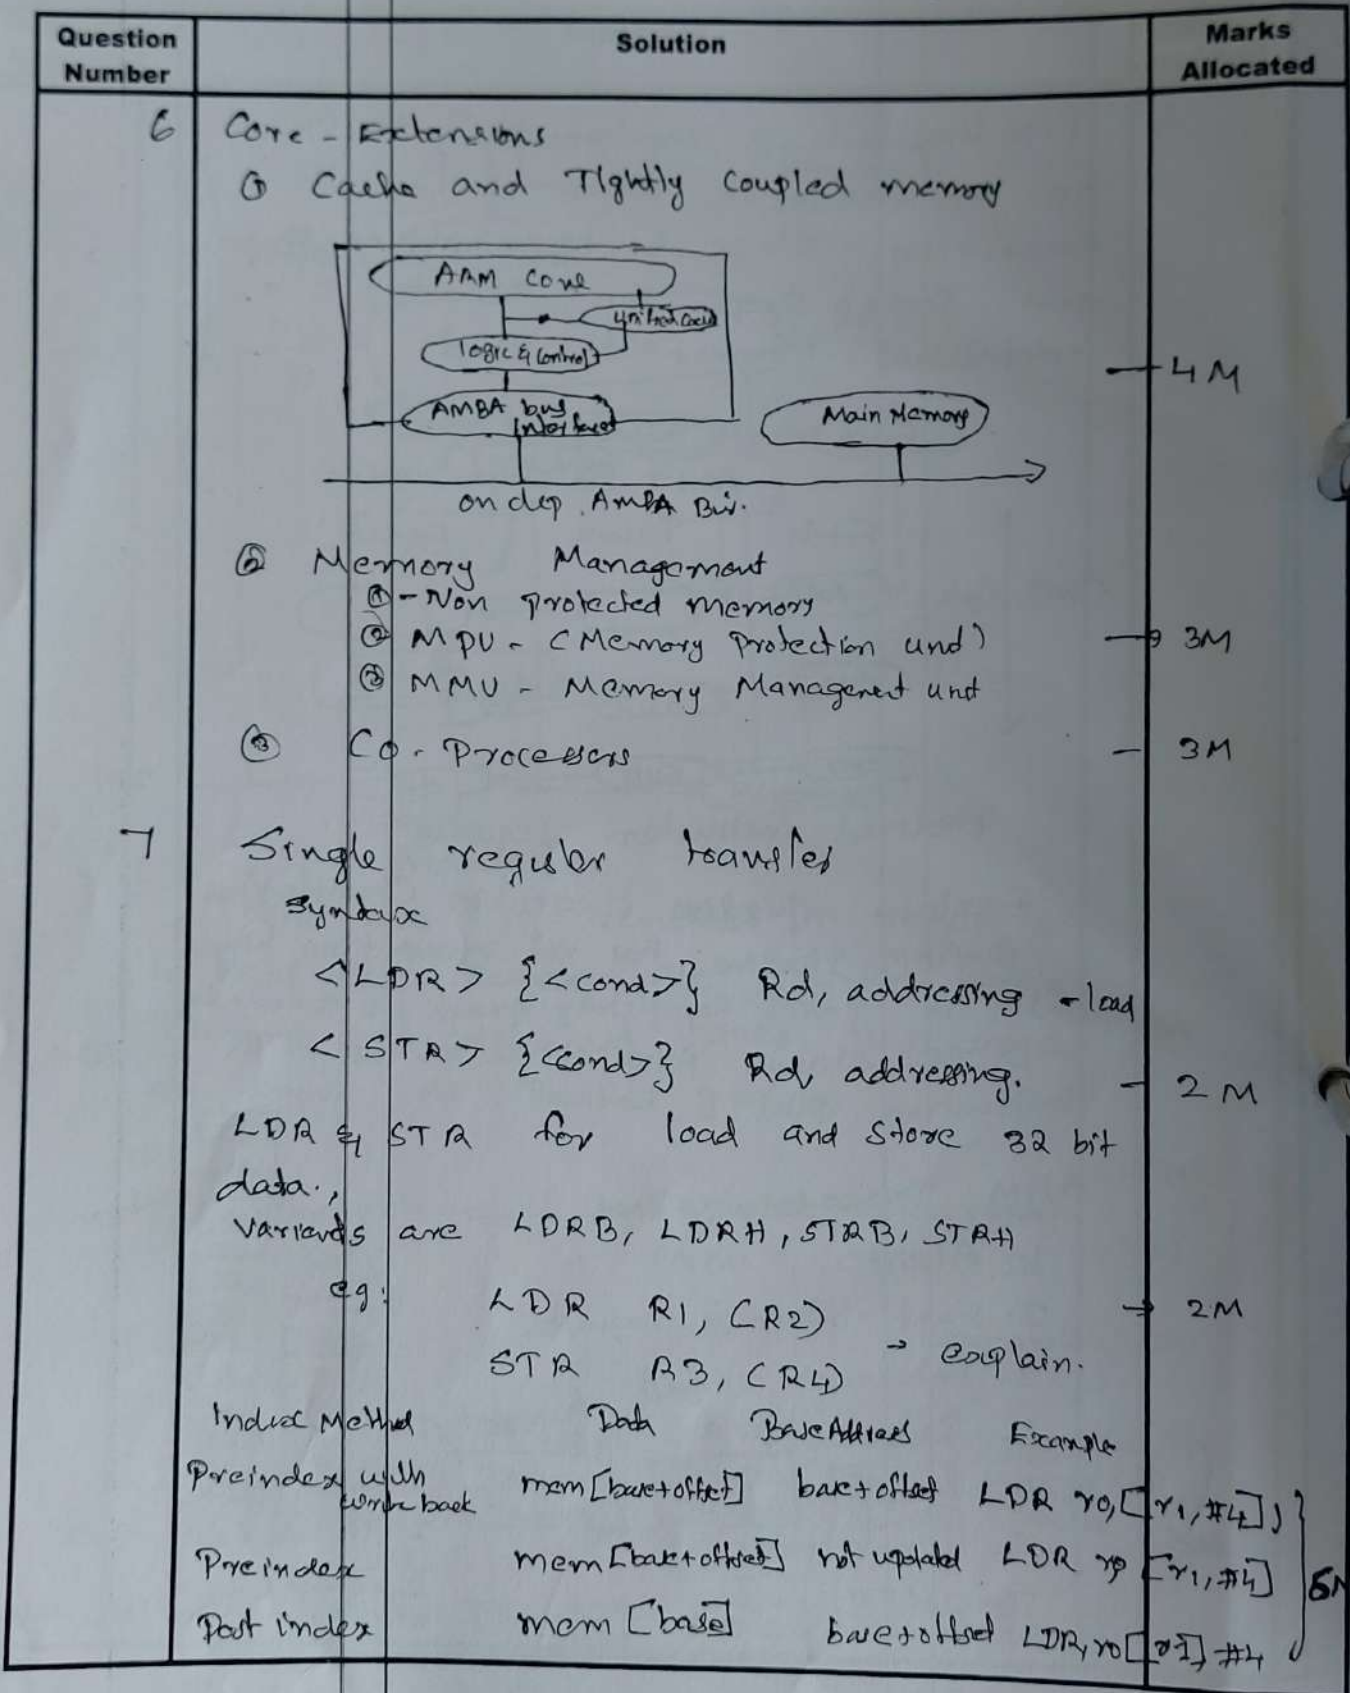 Question Number
Solution
Marks Allocated
6 Core - Extensions
① Cache and Tightly Coupled memory
ARM Core
Unified Cache
logic & Control
AMBA bus Interface
Main Memory
4 M
on AMBA Bus.
② Memory Management
① - Non protected memory
② MPU - (Memory Protection unit) 3M
③ MMU - Memory Management unit
③ Co - Processors - 3M
7 Single register transfer
Syntax
<LDR> {<cond>} Rd, addressing - load
<STR> {<cond>} Rd, addressing. - 2 M
LDR & STR for load and Store 32 bit
data.,
Variants are LDRB, LDRH, STRB, STRH
eg: LDR R1, (R2) 2M
STR R3, (R4) → explain.
Index Method Data Base Address Example
Preindex with write back mem [base+offset] base+offset LDR r0, [r1, #4]!
Preindex mem [base+offset] not updated LDR r0 [r1, #4]
Post index mem [base] base+offset LDR, r0 [r1] #4